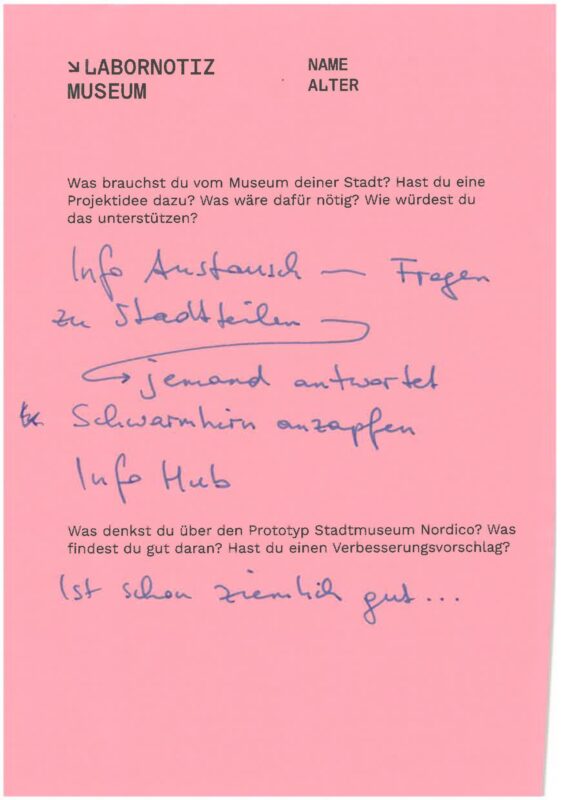 ↘ LABORNOTIZ
MUSEUM
NAME
ALTER
Was brauchst du vom Museum deiner Stadt? Hast du eine
Projektidee dazu? Was wäre dafür nötig? Wie würdest du
das unterstützen?
Info Austausch — Fragen
zu Stadtteilen
→ jemand antwortet
Schwarmhirn anzapfen
Info Hub
Was denkst du über den Prototyp Stadtmuseum Nordico? Was
findest du gut daran? Hast du einen Verbesserungsvorschlag?
Ist schon ziemlich gut...